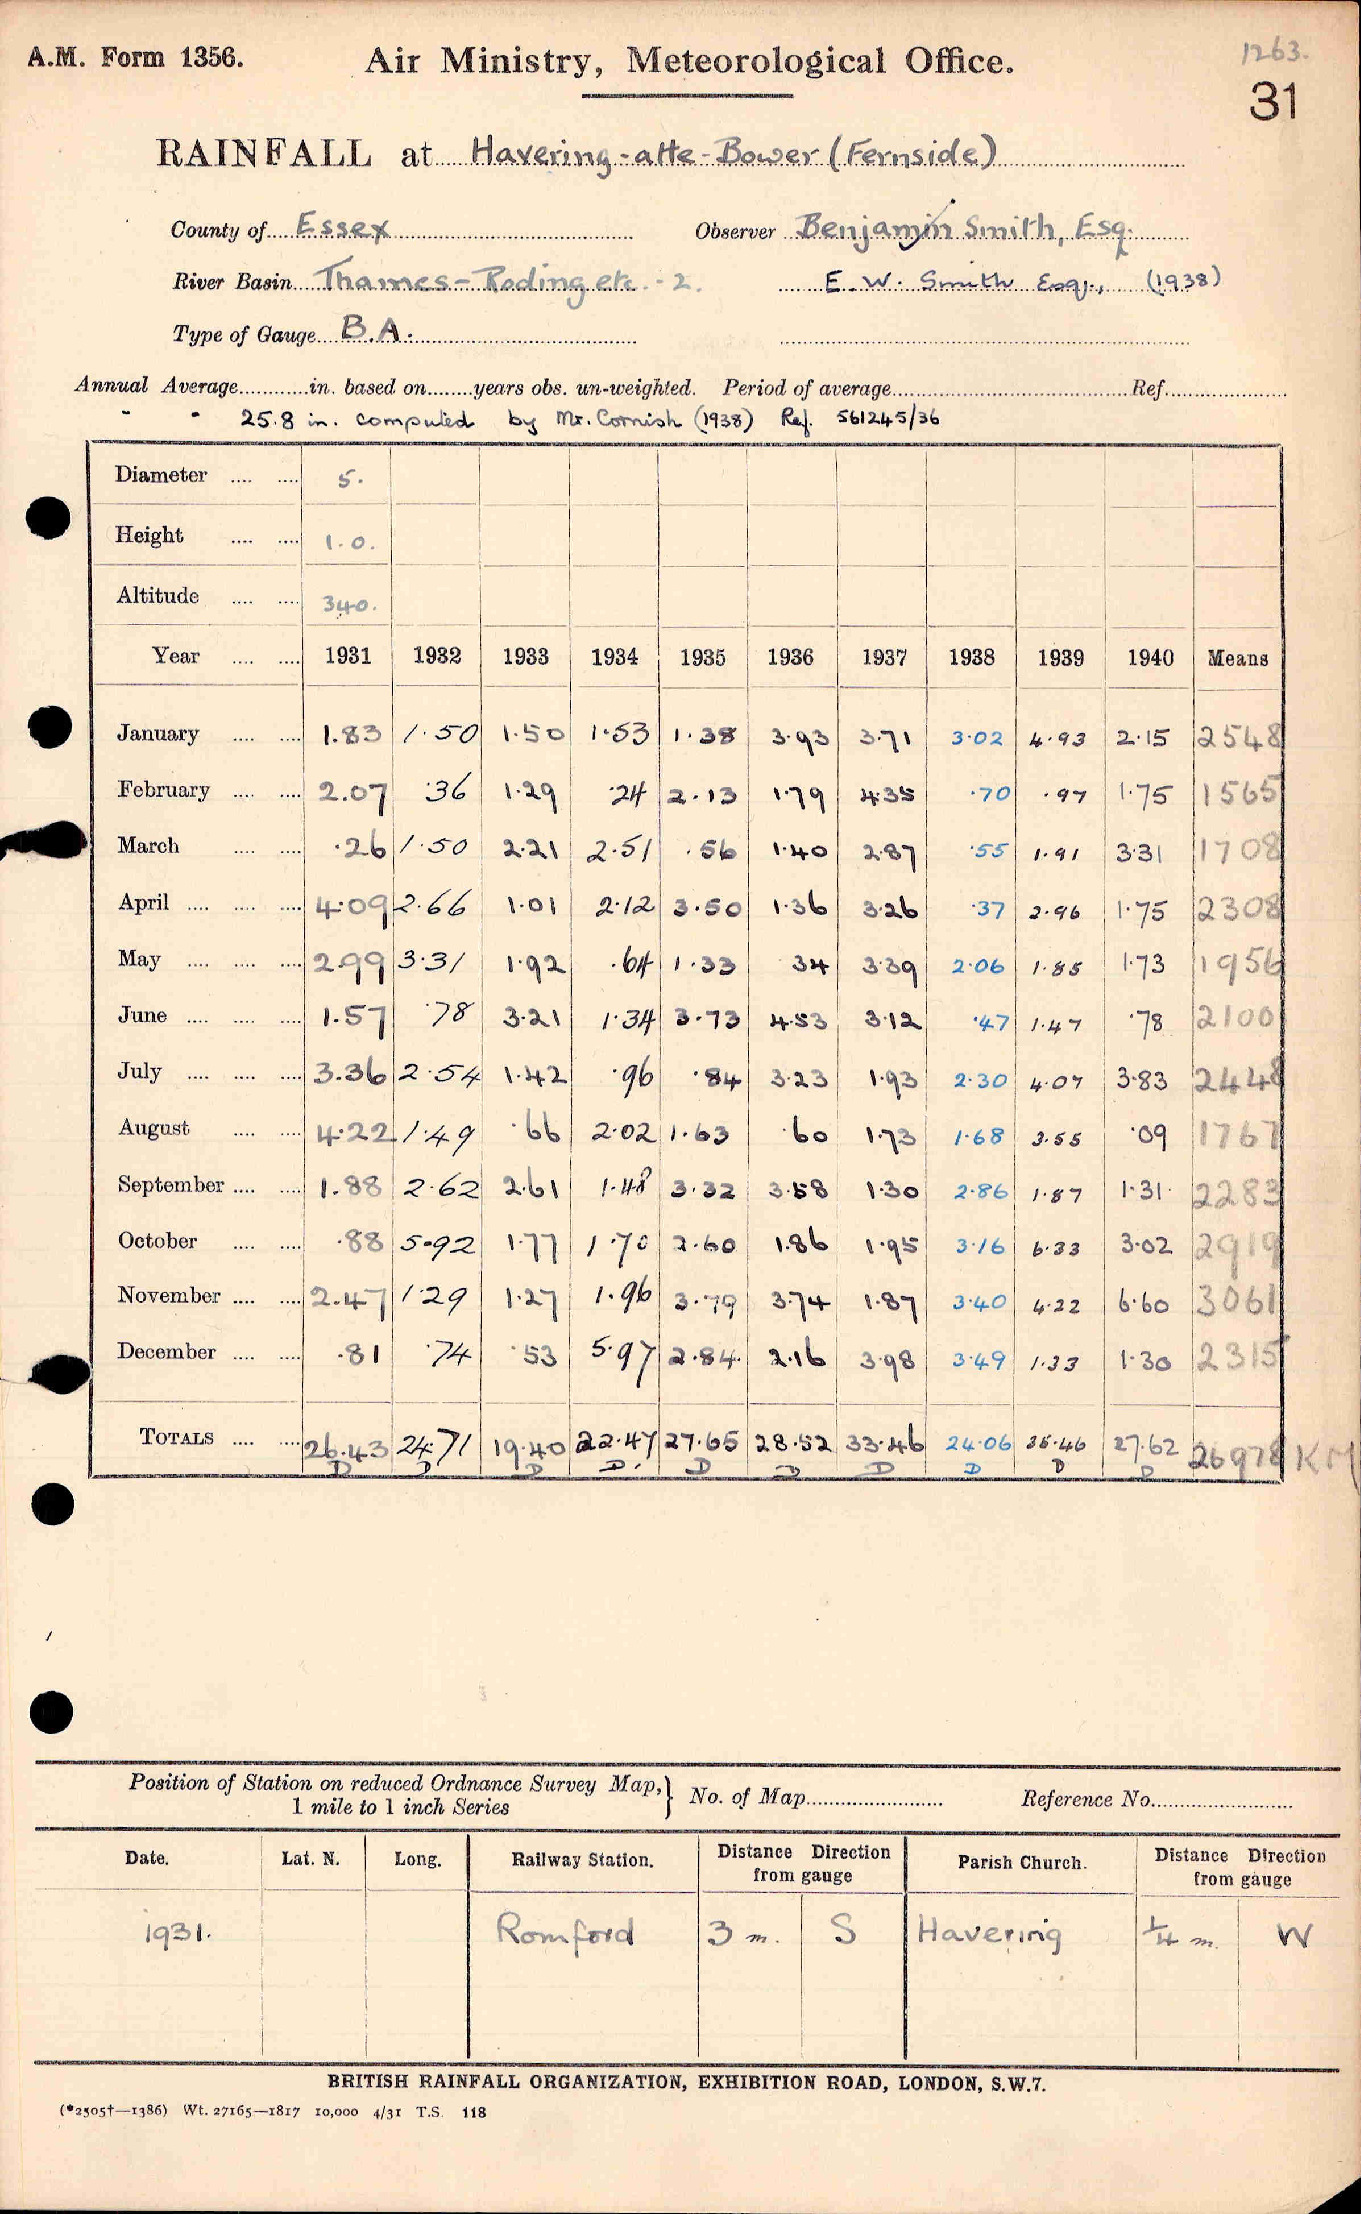 A.M. Form 1356.
Air Ministry, Meteorological Office.
1263.
31
RAINFALL at Havering-atte-Bower (Fernside)
County of Essex Observer Benjamin Smith, Esq.
River Basin Thames - Roding etc. - 2. E. W. Smith Esq., (1938)
Type of Gauge B.A.
Annual Average............in. based on........years obs. un-weighted. Period of average............Ref............
" " 25.8 in. computed by Mr. Cornish (1938) Ref. 561245/36
Diameter .... .... 5.
Height .... .... 1.0.
Altitude .... .... 340.
Year .... .... 1931 1932 1933 1934 1935 1936 1937 1938 1939 1940 Means
January .... .... 1.83 1.50 1.50 1.53 1.38 3.93 3.71 3.02 4.93 2.15 2548
February .... .... 2.07 .36 1.29 .24 2.13 1.79 4.35 .70 .97 1.75 1565
March .... .... .26 1.50 2.21 2.51 .56 1.40 2.87 .55 1.91 3.31 1708
April .... .... .... 4.09 2.66 1.01 2.12 3.50 1.36 3.26 .37 2.96 1.75 2308
May .... .... .... 2.99 3.31 1.92 .64 1.33 34 3.39 2.06 1.85 1.73 1956
June .... .... .... 1.57 .78 3.21 1.34 3.73 4.53 3.12 .47 1.47 .78 2100
July .... .... .... 3.36 2.54 1.42 .96 .84 3.23 1.93 2.30 4.07 3.83 2448
August .... .... 4.22 1.49 .66 2.02 1.63 .60 1.73 1.68 3.55 .09 1767
September .... .... 1.88 2.62 2.61 1.48 3.32 3.58 1.30 2.86 1.87 1.31 2283
October .... .... .88 5.92 1.77 1.70 2.60 1.86 1.95 3.16 6.33 3.02 2919
November .... .... 2.47 1.29 1.27 1.96 3.79 3.74 1.87 3.40 4.22 6.60 3061
December .... .... .81 .74 .53 5.97 2.84 2.16 3.98 3.49 1.33 1.30 2315
TOTALS .... .... 26.43 24.71 19.40 22.47 27.65 28.52 33.46 24.06 35.46 27.62 26978 KM
D D D D. D D D D D D
Position of Station on reduced Ordnance Survey Map, } No. of Map............ Reference No............
1 mile to 1 inch Series
Date. Lat. N. Long. Railway Station. Distance Direction from gauge Parish Church. Distance Direction from gauge
1931. Romford 3 m. S Havering 1/4 m W
BRITISH RAINFALL ORGANIZATION, EXHIBITION ROAD, LONDON, S.W.7.
(*2505†—1386) Wt. 27165—1817 10,000 4/31 T.S. 118